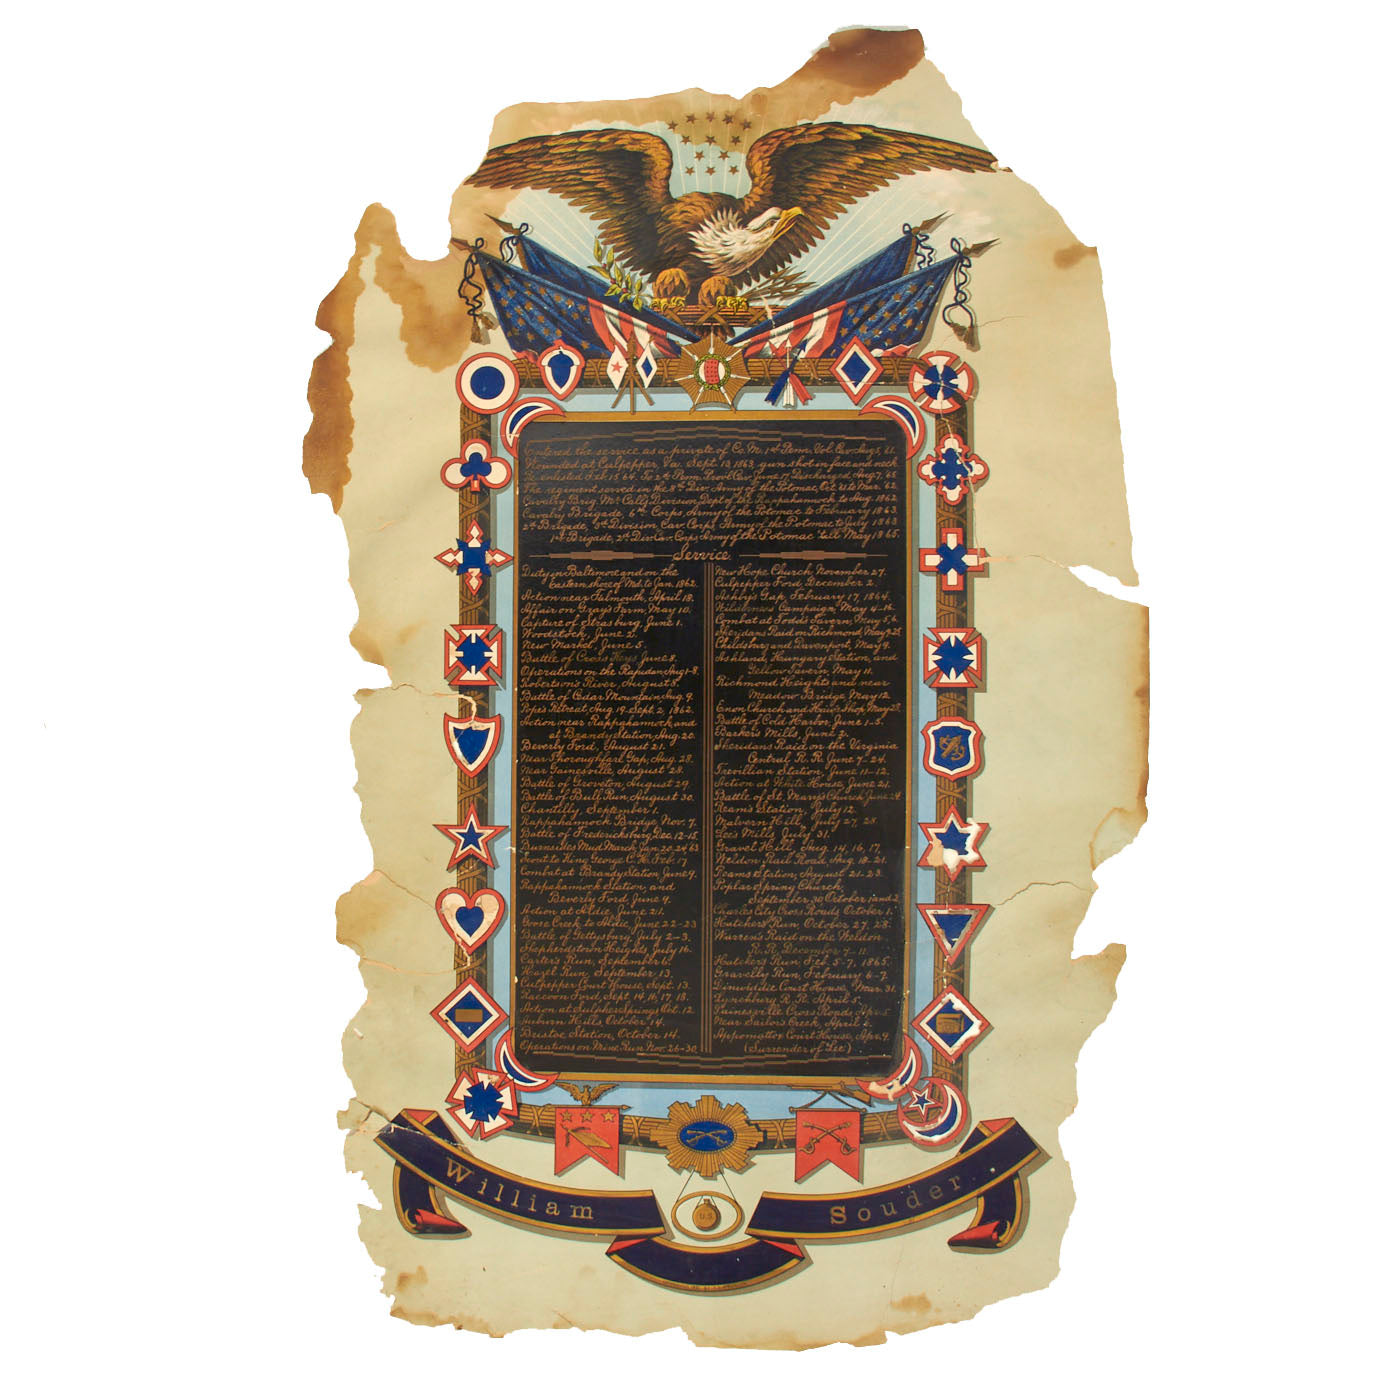 Entered the service as a private of Co. M. 1st Penn. Vol. Cav. Aug 5, 61.
Wounded at Culpepper, Va. Sept. 13, 1863, gun shot in face and neck
Reenlisted Feb. 15 64. To 2nd Penn. Provl Cav. June 17, Discharged Aug. 7, 65
The regiment served in the Div. Army of the Potomac Oct. 61 to Mar. '62
Cavalry Brig. Mc Calls Division, Dept of the Rappahannock to Aug. 1862
Cavalry Brigade, 6th Corps, Army of the Potomac to February 1863
2nd Brigade, 3rd Division Cav. Corps Army of the Potomac to July 1863
1st Brigade, 2nd Div. Cav. Corps, Army of the Potomac till May 1865.
Service.
Duty in Baltimore and on the
Eastern shore of Md. to Jan. 1862.
Action near Falmouth, April 18.
Affair on Gray's Farm, May 10.
Capture of Strasburg, June 1.
Woodstock, June 2.
New Market June 5.
Battle of Cross Keys June 8.
Operations on the Rapidan Aug 1-8.
Robertson's River, August 5.
Battle of Cedar Mountain, Aug. 9.
Pope's Retreat, Aug. 19-Sept. 2, 1862.
Action near Rappahannock and
at Brandy Station, Aug. 20.
Beverly Ford, August 21.
Near Thoroughfare Gap, Aug. 28.
Near Gainesville, August 28.
Battle of Groveton, August 29.
Battle of Bull Run, August 30.
Chantilly, September 1.
Rappahannock Bridge, Nov. 7.
Battle of Fredericksburg, Dec. 12-15
Burnsides Mud March, Jan. 20-24 63
Scout to King George C. H. Feb. 17
Combat at Brandy Station, June 9.
Rappahannock Station, and
Beverly Ford, June 9.
Action at Aldie, June 21.
Goose Creek to Aldie, June 22-23
Battle of Gettysburg, July 2-3.
Shepherdstown Heights, July 16.
Carter's Run, September 6.
Hazel Run, September 13.
Culpepper Court House, Sept. 13.
Raccoon Ford, Sept. 14, 16, 17, 18.
Action at Sulpher Springs Oct. 12.
Auburn Hills, October 14.
Bristoe Station, October 14.
Operations on Mine Run Nov. 26-30
New Hope Church November 27.
Culpepper Ford, December 2.
Ashby's Gap, February 17, 1864.
Wilderness Campaign, May 4-16.
Combat at Todd's Tavern, May 5,6
Sheridans Raid on Richmond May 9-25
Childsburg and Davenport, May 9.
Ashland, Hungary Station, and
Yellow Tavern May 11.
Richmond Heights and near
Meadow Bridge, May 12.
Enon Church and Haw's Shop May 28.
Battle of Cold Harbor, June 1-5.
Barker's Mills, June 2.
Sheridans Raid on the Virginia
Central R. R. June 7-24.
Trevillian Station, June 11-12.
Action at White House, June 21.
Battle of St. Mary's Church June 24
Ream's Station, July 12.
Malvern Hill, July 27, 28.
Lee's Mills, July 31.
Gravel Hill, Aug. 14, 16, 17,
Weldon Rail Road, Aug. 18-21.
Reams Station, August 21-23.
Poplar Spring Church,
September 30 October 1 and 2
Charles City Cross Roads October 1.
Hatcher's Run, October 27, 28.
Warren's Raid on the Weldon
R. R. December 7-11.
Hatcher's Run Feb. 5-7, 1865.
Gravelly Run, February 6-7.
Dinwiddie Court House, Mar. 31.
Lynchburg R. R. April 5.
Painesville Cross Roads Apr. 5
Near Sailor's Creek, April 6
Appomattox Court House, Apr. 9.
(Surrender of Lee)
U.S.
William Souder..